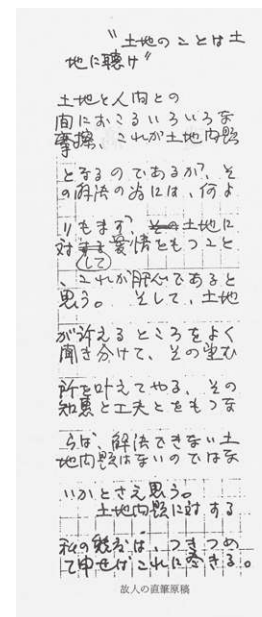 “土地のことは土
地に聴け”
土地と人間との
間におこるいろいろな
摩擦、これが土地問題
となるのであるが、そ
の解決の為には、何よ
りもまず、土地に
対して愛情をもつこと
、これが肝心であると
思う。そして、土地
が訴えるところをよく
聞き分けて、その望む
所を叶えてやる、その
知恵と工夫とをもつな
らば、解決できない土
地問題はないのではな
いかとさえ思う。
土地問題に対する
私の態度は、つきつめ
て申せばこれに尽きる。
故人の直筆原稿